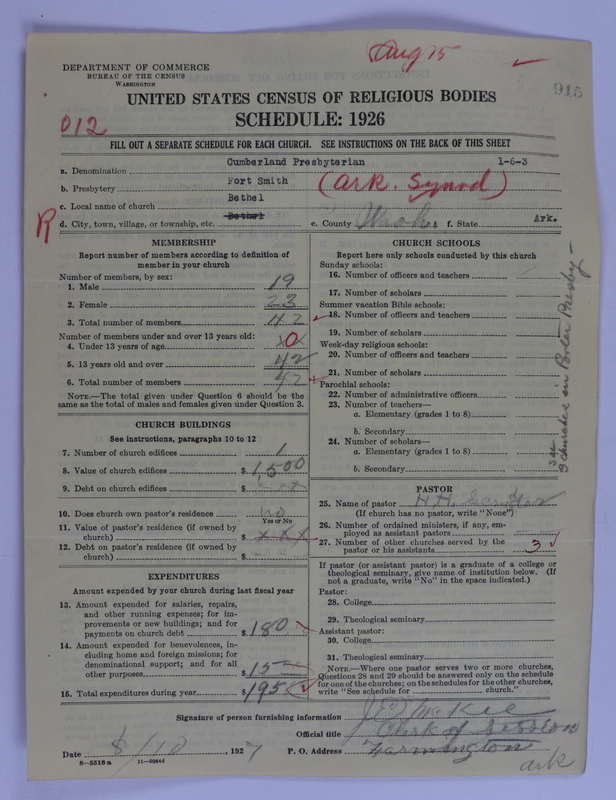 Aug 25
915
DEPARTMENT OF COMMERCE
BUREAU OF THE CENSUS
WASHINGTON
UNITED STATES CENSUS OF RELIGIOUS BODIES
SCHEDULE: 1926
012
FILL OUT A SEPARATE SCHEDULE FOR EACH CHURCH. SEE INSTRUCTIONS ON THE BACK OF THIS SHEET
a. Denomination Cumberland Presbyterian 1-6-3
b. Presbytery Fort Smith (Ark. Synod)
c. Local name of church Bethel
R
d. City, town, village, or township, etc. Bethel e. County f. State Ark.
MEMBERSHIP
Report number of members according to definition of
member in your church
Number of members, by sex:
1. Male 19
2. Female 23
3. Total number of members 42
Number of members under and over 13 years old:
4. Under 13 years of age 0
5. 13 years old and over 42
6. Total number of members 42
NOTE.—The total given under Question 6 should be the
same as the total of males and females given under Question 3.
CHURCH BUILDINGS
See instructions, paragraphs 10 to 12
7. Number of church edifices 1
8. Value of church edifices $1500
9. Debt on church edifices $
10. Does church own pastor's residence no
Yes or No
11. Value of pastor's residence (if owned by
church) $ x x x
12. Debt on pastor's residence (if owned by
church) $
EXPENDITURES
Amount expended by your church during last fiscal year
13. Amount expended for salaries, repairs,
and other running expenses; for im-
provements or new buildings; and for
payments on church debt $180
14. Amount expended for benevolences, in-
cluding home and foreign missions; for
denominational support; and for all
other purposes $15
15. Total expenditures during year $195
CHURCH SCHOOLS
Report here only schools conducted by this church
Sunday schools:
16. Number of officers and teachers
17. Number of scholars
Summer vacation Bible schools:
18. Number of officers and teachers
19. Number of scholars
Week-day religious schools:
20. Number of officers and teachers
21. Number of scholars
Parochial schools:
22. Number of administrative officers
23. Number of teachers—
a. Elementary (grades 1 to 8)
b. Secondary
24. Number of scholars—
a. Elementary (grades 1 to 8)
b. Secondary
PASTOR
25. Name of pastor H.H.
(If church has no pastor, write "None")
26. Number of ordained ministers, if any, em-
ployed as assistant pastors
27. Number of other churches served by the
pastor or his assistants 3
If pastor (or assistant pastor) is a graduate of a college or
theological seminary, give name of institution below. (If
not a graduate, write "No" in the space indicated.)
Pastor:
28. College
29. Theological seminary
Assistant pastor:
30. College
31. Theological seminary
NOTE.—Where one pastor serves two or more churches,
Questions 28 and 29 should be answered only on the schedule
for one of the churches; on the schedules for the other churches,
write "See schedule for church."
Signature of person furnishing information J.E. McKee
Official title Clerk of Session
Date 8/10, 1927 P. O. Address Farmington
Ark
8—5518a 11—